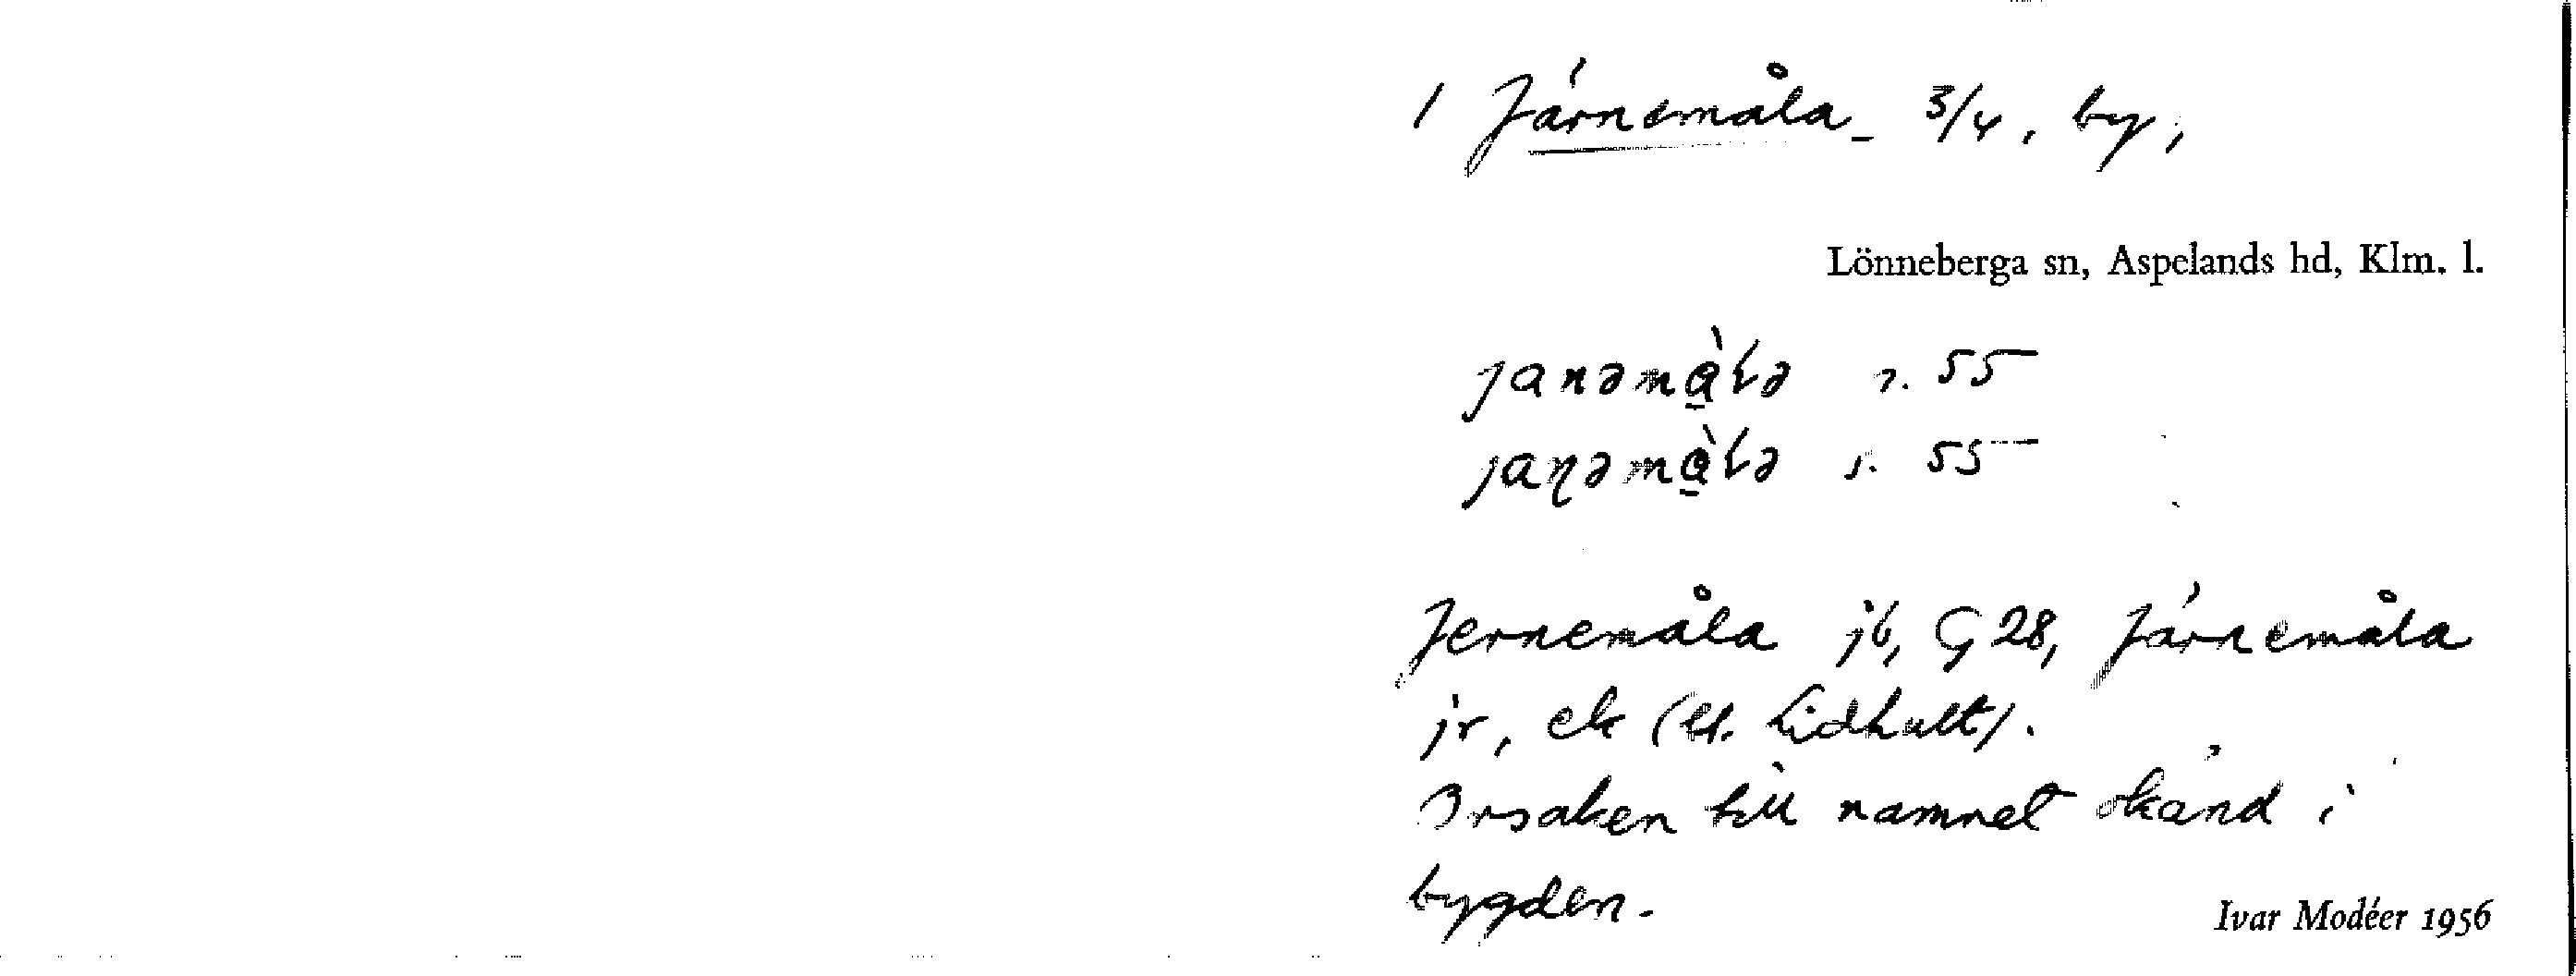 1 Järnemåla 3/4, by,
Lönneberga sn, Aspelands hd, Klm. l.
janəmàlə s. 55
jaṇəmàlə s. 55
Jernemåla jb, G 28, Järnemåla
jr, ek (H. Lidhult).
Orsaken till namnet okänd i
bygden.
Ivar Modéer 1956